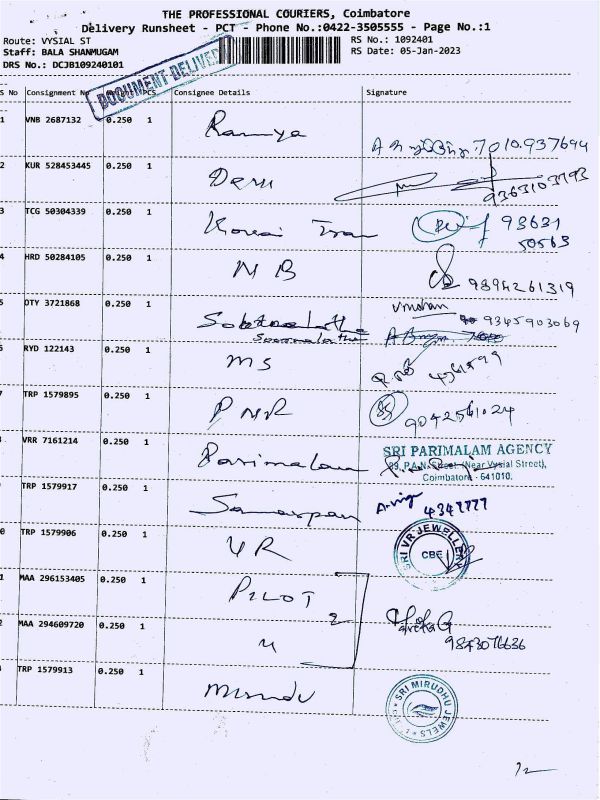 THE PROFESSIONAL COURIERS, Coimbatore
Delivery Runsheet - PCT - Phone No.:0422-3505555 - Page No.:1
Route: VYSIAL ST
RS No.: 1092401
Staff: BALA SHANMUGAM
RS Date: 05-Jan-2023
DRS No.: DCJB109240101
DOCUMENT DELIVER
S No Consignment N PCS Consignee Details Signature
1 VNB 2687132 0.250 1 Ramya 7010937694
2 KUR 528453445 0.250 1 Devi 9363103793
3 TCG 50304339 0.250 1 Kovai 93631
50563
4 HRD 50284105 0.250 1 M B 9894261319
5 OTY 3721868 0.250 1 vmohan 9345903069
RYD 122143 0.250 1 MS
TRP 1579895 0.250 1 PNR 9042561024
VRR 7161214 0.250 1 Parimalam SRI PARIMALAM AGENCY
89, P.A.N. Street, (Near Vysial Street),
Coimbatore - 641010.
TRP 1579917 0.250 1 4347777
0 TRP 1579906 0.250 1 VR SRI VR JEWELLERY CBE
1 MAA 296153405 0.250 1 PILOT 2
2 MAA 294609720 0.250 1 9843076636
TRP 1579913 0.250 1 SRI MIRUDHU JEWELS